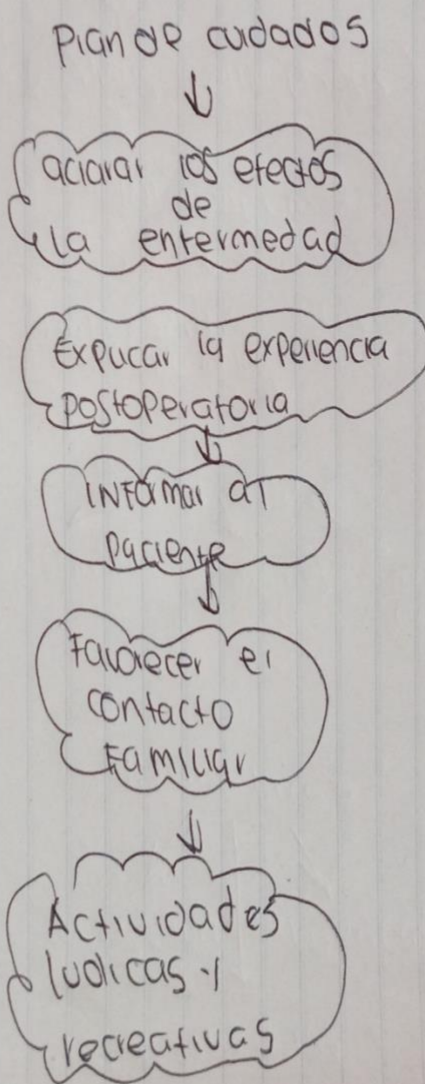 Plan de cuidados
aclarar los efectos
de
la enfermedad
Explicar la experiencia
postoperatoria
INFormar al
paciente
Favorecer el
contacto
Familiar
Actividades
ludicas y
recreativas